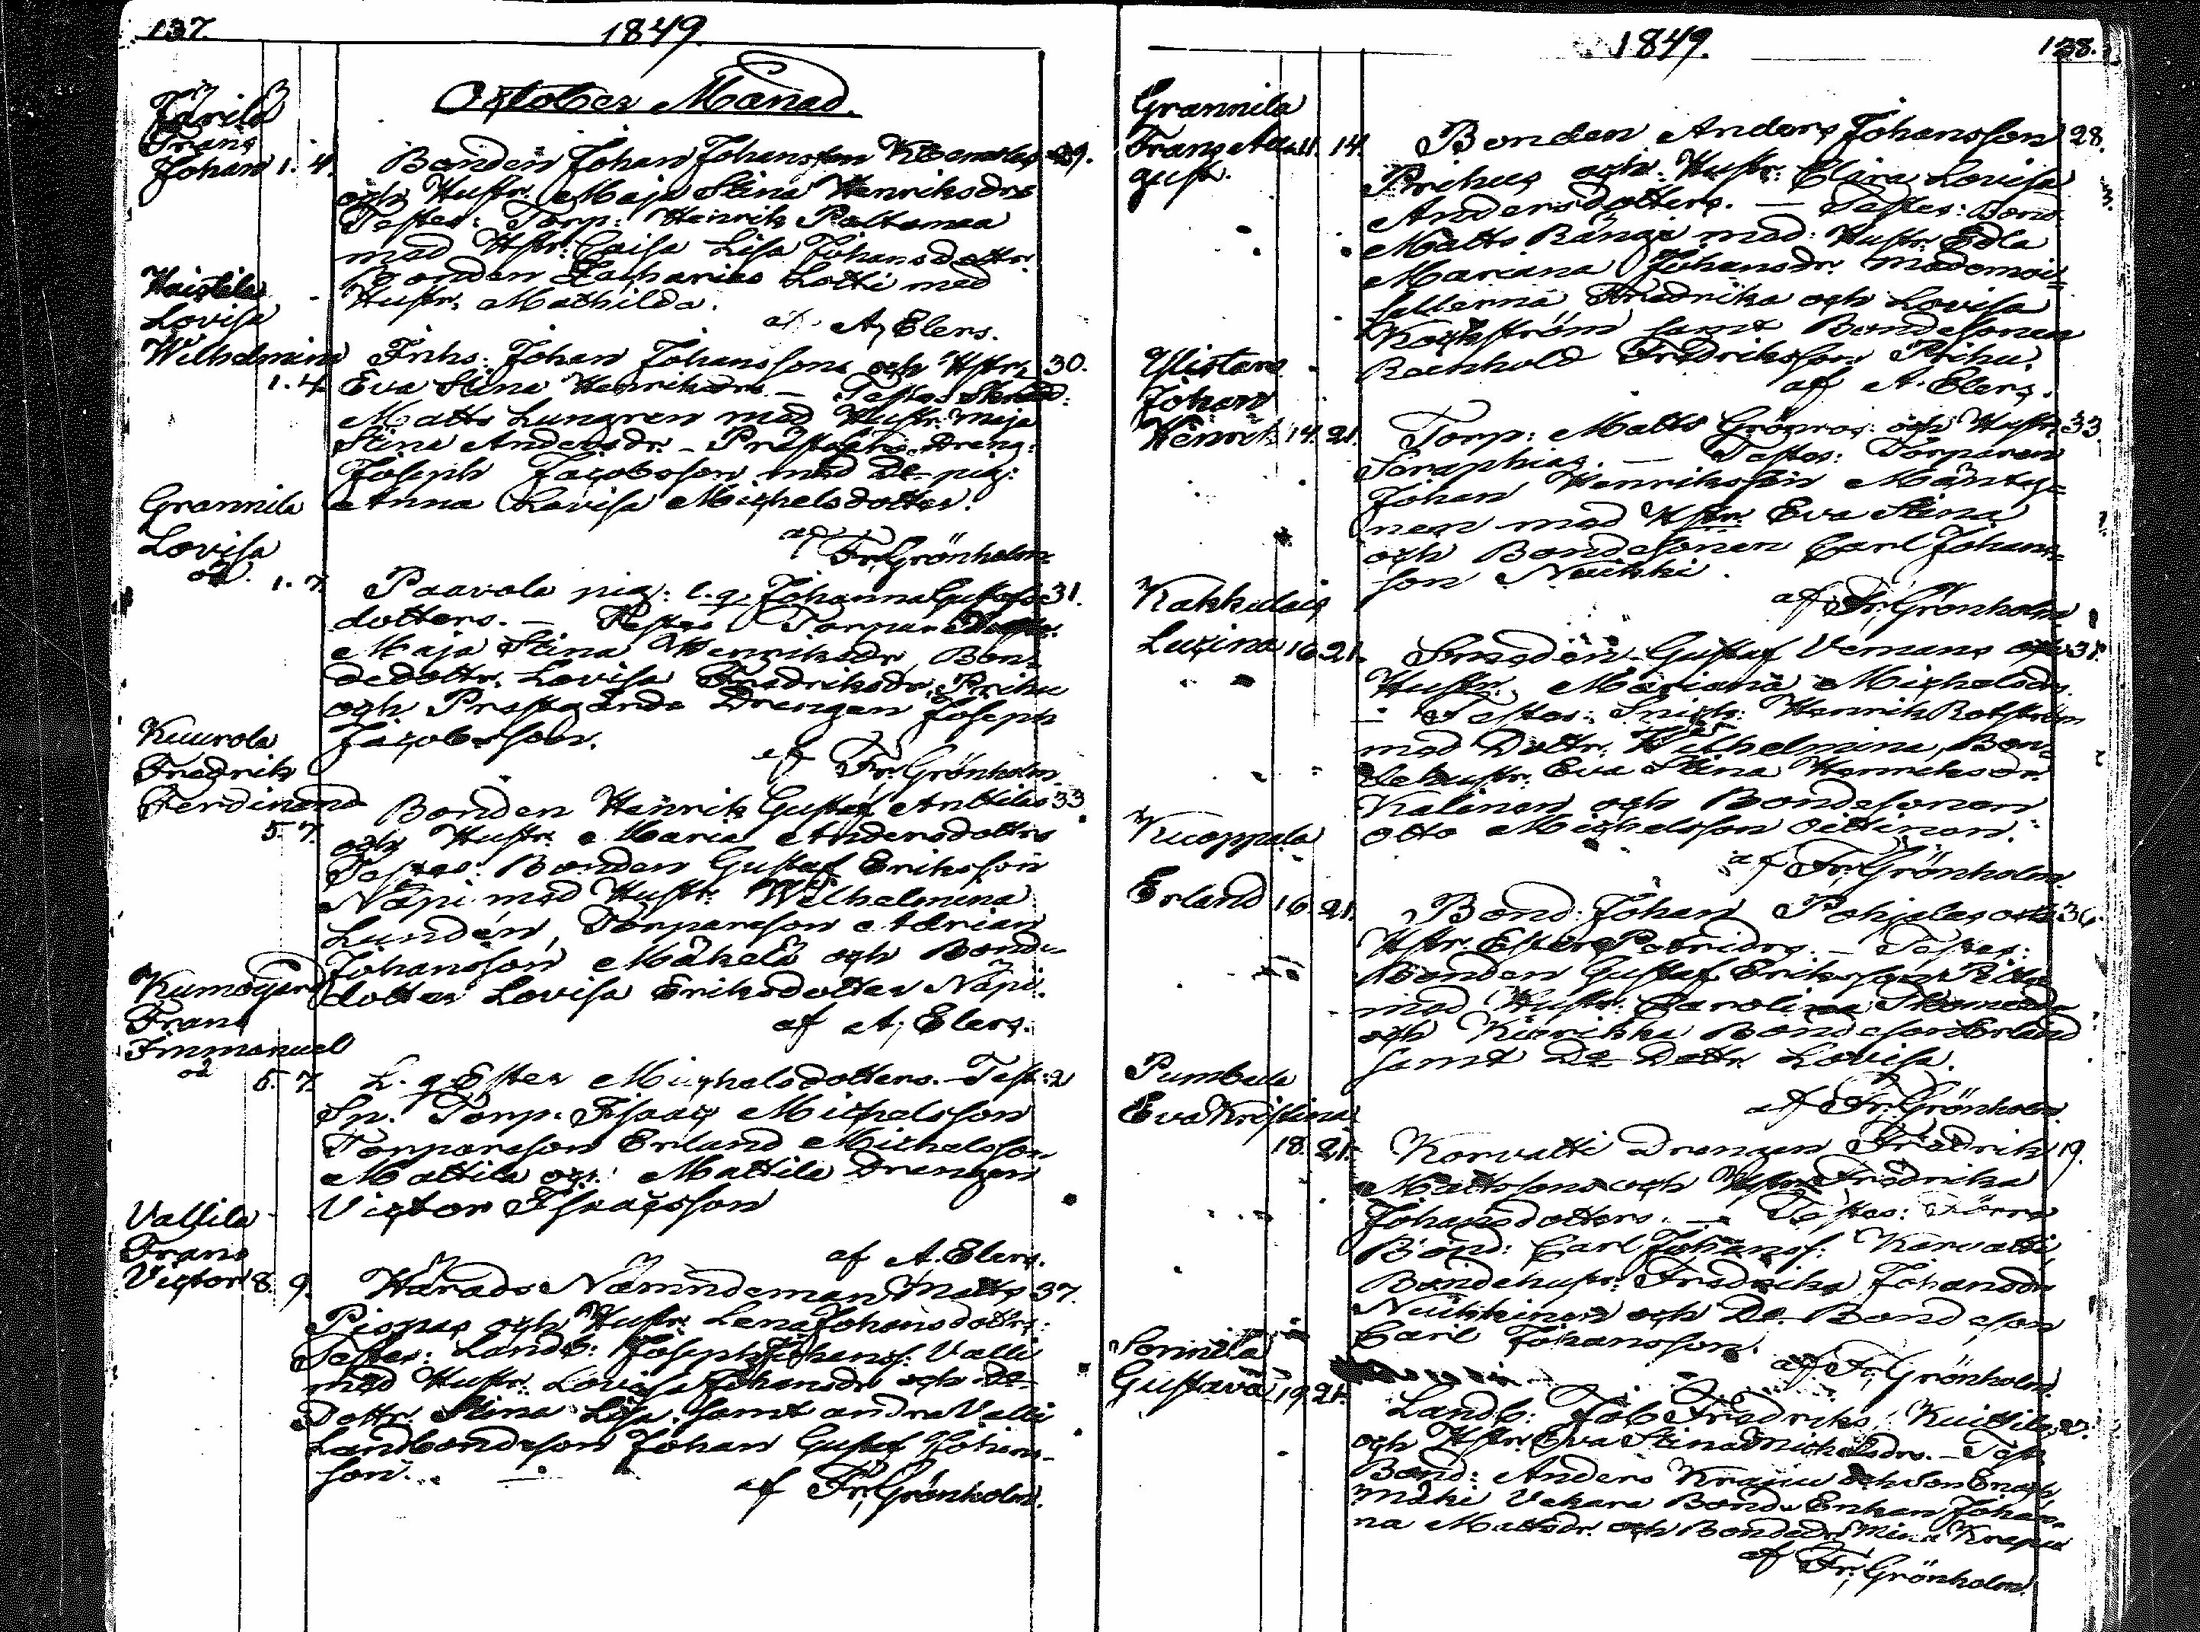 137.
1849.
October Månad.
Javila
Frans
Johan 1. 4. Bonden Johan Johansson 29.
och Hustr. Maja Stina Henriksdrs
Testes: Torp: Henrik Paltamaa
med Hstr. Caisa Lisa Johansdottr.
Bonden Zacharias Lotti med
Hustr. Mathilda.
af A, Elers.
Haistila
Lovisa
Wilhelmina
1. 4. Friks: Johan Johanssons och Hstr. 30.
Eva Stina Henriksdrs — Testes
Matts Lungren med Hustr. Maja
Stina Andersdr. — Prestgårds Dreng:
Joseph Jacobsson med De pig:
Anna Lovisa Michelsdotter.
af Fr. Grönholm
Grannila
Lovisa
oä. 1. 7. Paavola pig: l.q. Johanna Gustafs 31.
dotters. — Testes Torpare
Maja Stina Henriksdr, Bon-
dedottr. Lovisa Fredriksdr. Prihu
och Prestgårds Drengen Joseph
Jacobsson.
af Fr. Grönholm
Kuurola
Fredrik
Ferdinand
5. 7. Bonden Henrik Gustaf Anttilas 33.
och Hustr. Maria Andersdotters
Testes: Bonden Gustaf Eriksson
Näpi med Hustr. Wilhelmina
Lundén, Torpareson Adrian
Johansson Mäkelä och Bonde-
dotter Lovisa Eriksdotter Näpi.
af A, Elers.
Kumogård
Frans
Immanuel
oä 5. 7. L. q. Ester Michelsdotters. — Test: 2
Sn. Torp. Isaac Michelsson
Torpareson Erland Michelsson
Mattila och Mattila Drengen
Victor Isaacsson
af A. Elers.
Valfila
Frans
Victor 8. 9. Härads Nämndeman Matts 37.
Piopas och Hustr. Lena Johansdottrs.
Testes: Landb: Joseph Johanss. Valli
med Hustr. Lovisa Johansdr och De
Dottr. Stina Lisa, samt andra Valli
Landbondeson Johan Gustaf Johans-
son.
af Fr. Grönholm.
1849.
138.
Grannila
Frans Au- 11. 14. Bonden Anders Johansson 28.
gust.
Prihus och Hustr. Elisa Lovisa
Andersdotters. — Testes: Bond.
Matts Ränga med Hustr. Edla
Mariana Johansdr. mademoi-
sellerna Fredrika och Lovisa
Kockström samt Bondesonen
Rechhold Fredriksson Prihu.
af A. Elers.
Ylistaro
Johan
Henrik 14. 21. Torp: Matts Grönros och Hustr. 33.
Seraphias. — Testes: Torparen
Johan Henriksson Mänty-
nen med Hstr. Eva Stina
och Bondesonen Carl Johans-
son Nuikki.
af Fr. Grönholm
Kakkulais
Lucina 16. 21. Smeden Gustaf Vemans och 31.
Hustr. Mariana Michelsdrs.
— Testes: Snick: Henrik Rotström
med Dottr. Wilhelmina, Bon-
dehustr. Eva Stina Henriksdr.
Kalinen och Bondesonen
Otto Michelsson Oittinen.
af Fr. Grönholm.
Kuoppala
Erland 16. 21. Bond: Johan Pohjolas och 36.
Hstr. Ester Petridrs. — Testes:
Bonden Gustaf Eriksson
med Hustr: Carolina
och Kürikka Bondeson Erland
samt De Dottr Lovisa.
af Fr. Grönholm
Pumbula
Eva Kristina
18. 21. Korvatti Drengen Fredrik 19.
Mattssons och Hstr Fredrika
Johansdotters. — Testes:
Bond: Carl Johanss: Korvatti,
Bondehustr: Fredrika Johansdr
Nuikkinen och De Bondeson
Carl Johansson.
af Fr. Grönholm.
Sonnila
Gustava 19. 21. Landb: Job Fredriks Kuitila 27.
och Hstr. Eva Stina Michelsdrs. — Test
Bond: Anders Krapu och Son Enoch
mäki Vakara Bonde Enkan Johan-
na Mattsdr. och Bondedr Mina Krapu
af Fr. Grönholm.